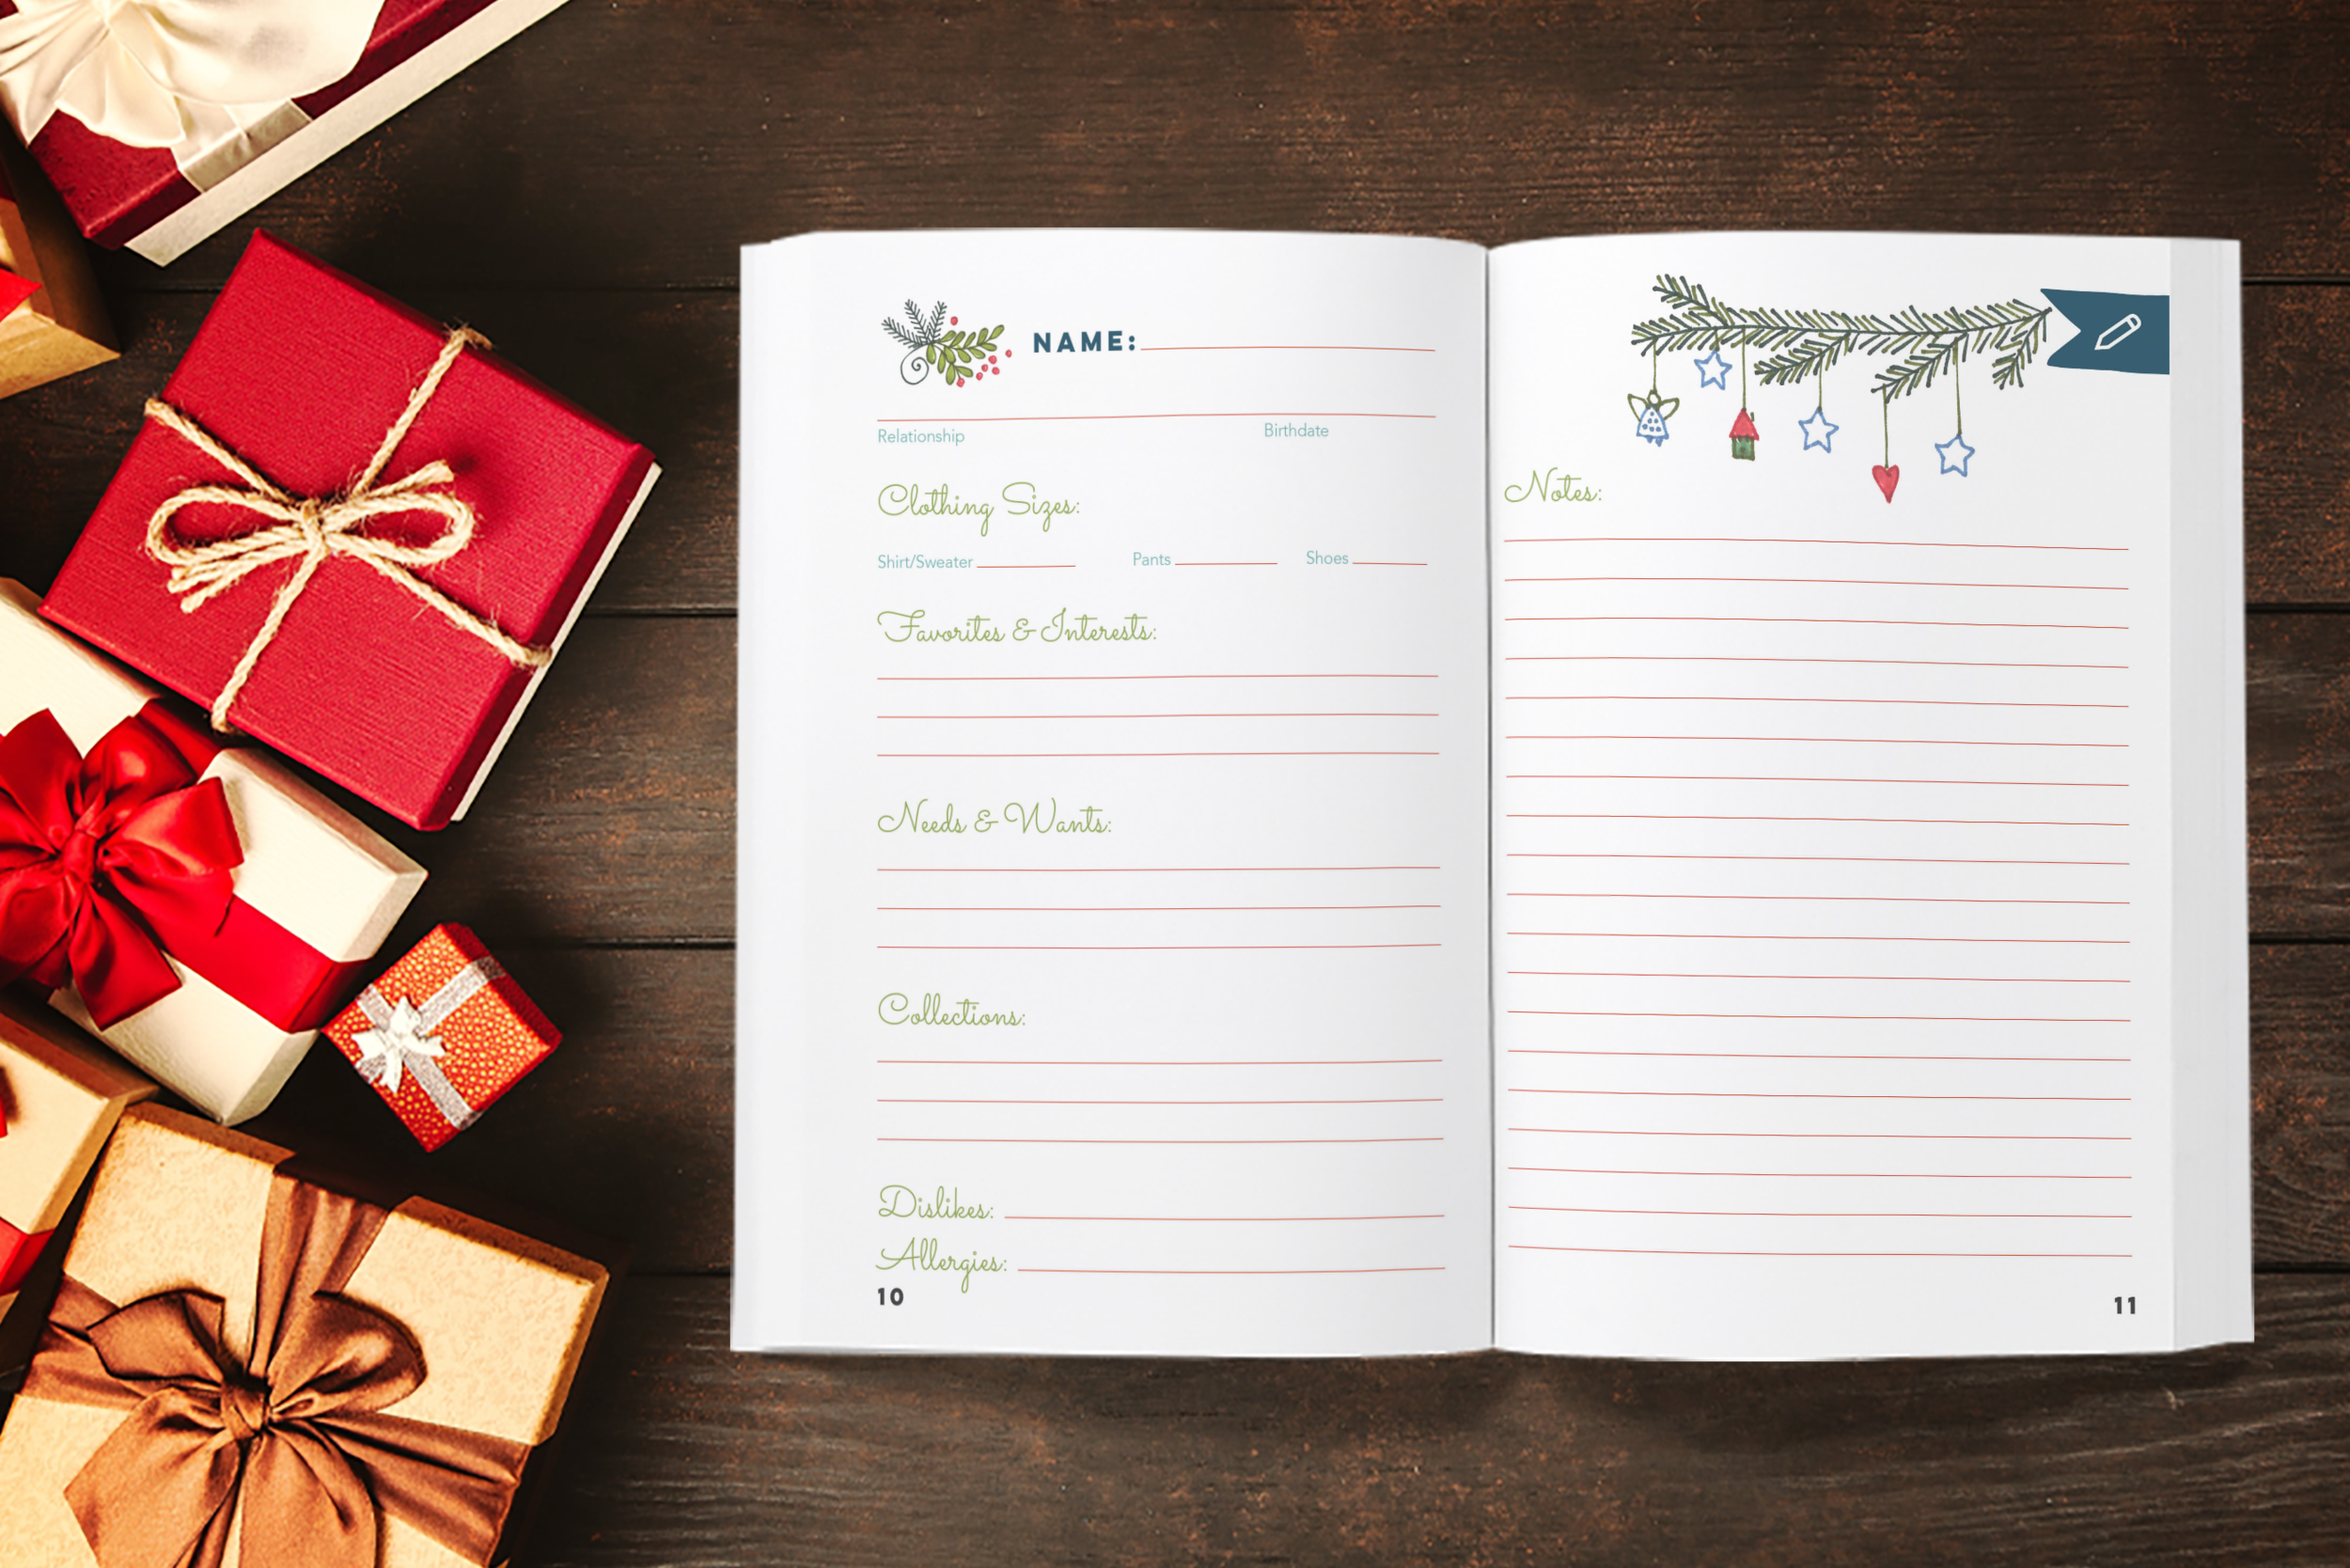 NAME:
Relationship Birthdate
Clothing Sizes:
Shirt/Sweater Pants Shoes
Favorites & Interests:
Needs & Wants:
Collections:
Dislikes:
Allergies:
10
Notes:
11